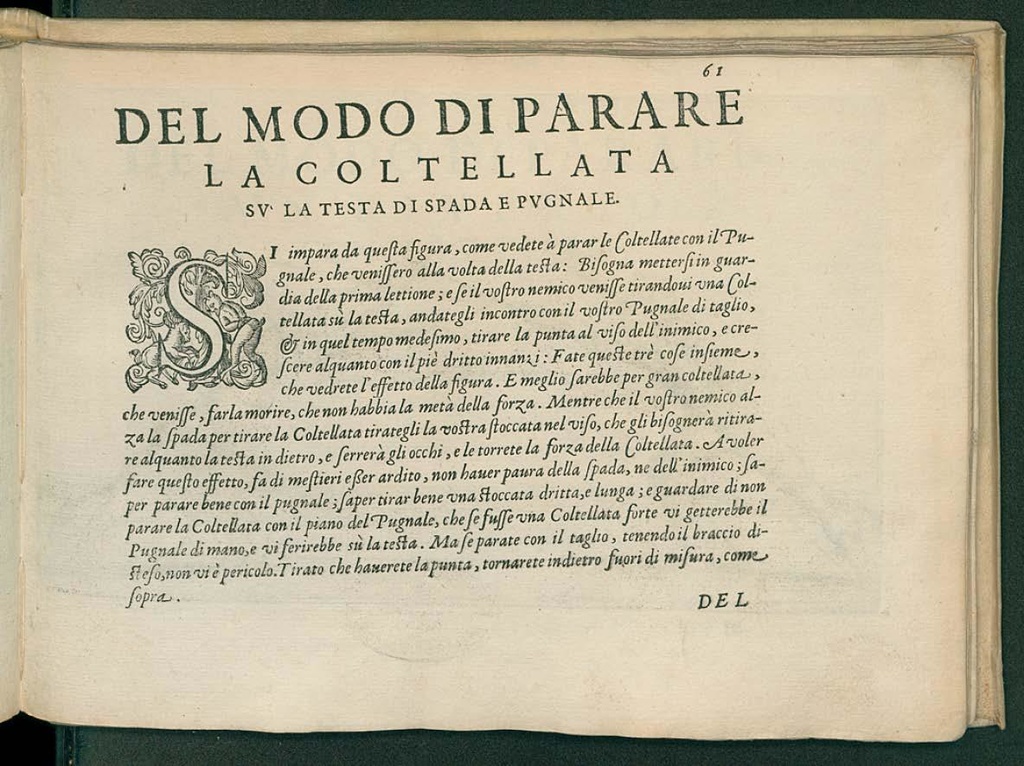 61
DEL MODO DI PARARE
LA COLTELLATA
SV' LA TESTA DI SPADA E PVGNALE.
SI impara da queſta figura, come vedete à parar le Coltellate con il Pu-
gnale, che veniſſero alla volta della teſta: Biſogna metterſi in guar-
dia della prima lettione; e ſe il voſtro nemico veniſſe tirandoui vna Col-
tellata sù la teſta, andategli incontro con il voſtro Pugnale di taglio,
& in quel tempo medeſimo, tirare la punta al viſo dell'inimico, e cre-
ſcere alquanto con il piè dritto innanzi: Fate queſte trè coſe inſieme,
che vedrete l'effetto della figura. E meglio ſarebbe per gran coltellata,
che veniſſe, farla morire, che non habbia la metà della forza. Mentre che il voſtro nemico al-
za la ſpada per tirare la Coltellata tirategli la voſtra ſtoccata nel viſo, che gli biſognerà ritira-
re alquanto la teſta in dietro, e ſerrerà gli occhi, e le torrete la forza della Coltellata. A voler
fare queſto effetto, fa di meſtieri eßer ardito, non hauer paura della ſpada, ne dell'inimico; ſa-
per parare bene con il pugnale; ſaper tirar bene vna ſtoccata dritta, e lunga; e guardare di non
parare la Coltellata con il piano del Pugnale, che ſe fuſſe vna Coltellata forte vi getterebbe il
Pugnale di mano, e vi ferirebbe sù la teſta. Ma ſe parate con il taglio, tenendo il braccio di-
ſteſo, non vi è pericolo. Tirato che hauerete la punta, tornarete indietro fuori di miſura, come
ſopra.
DEL